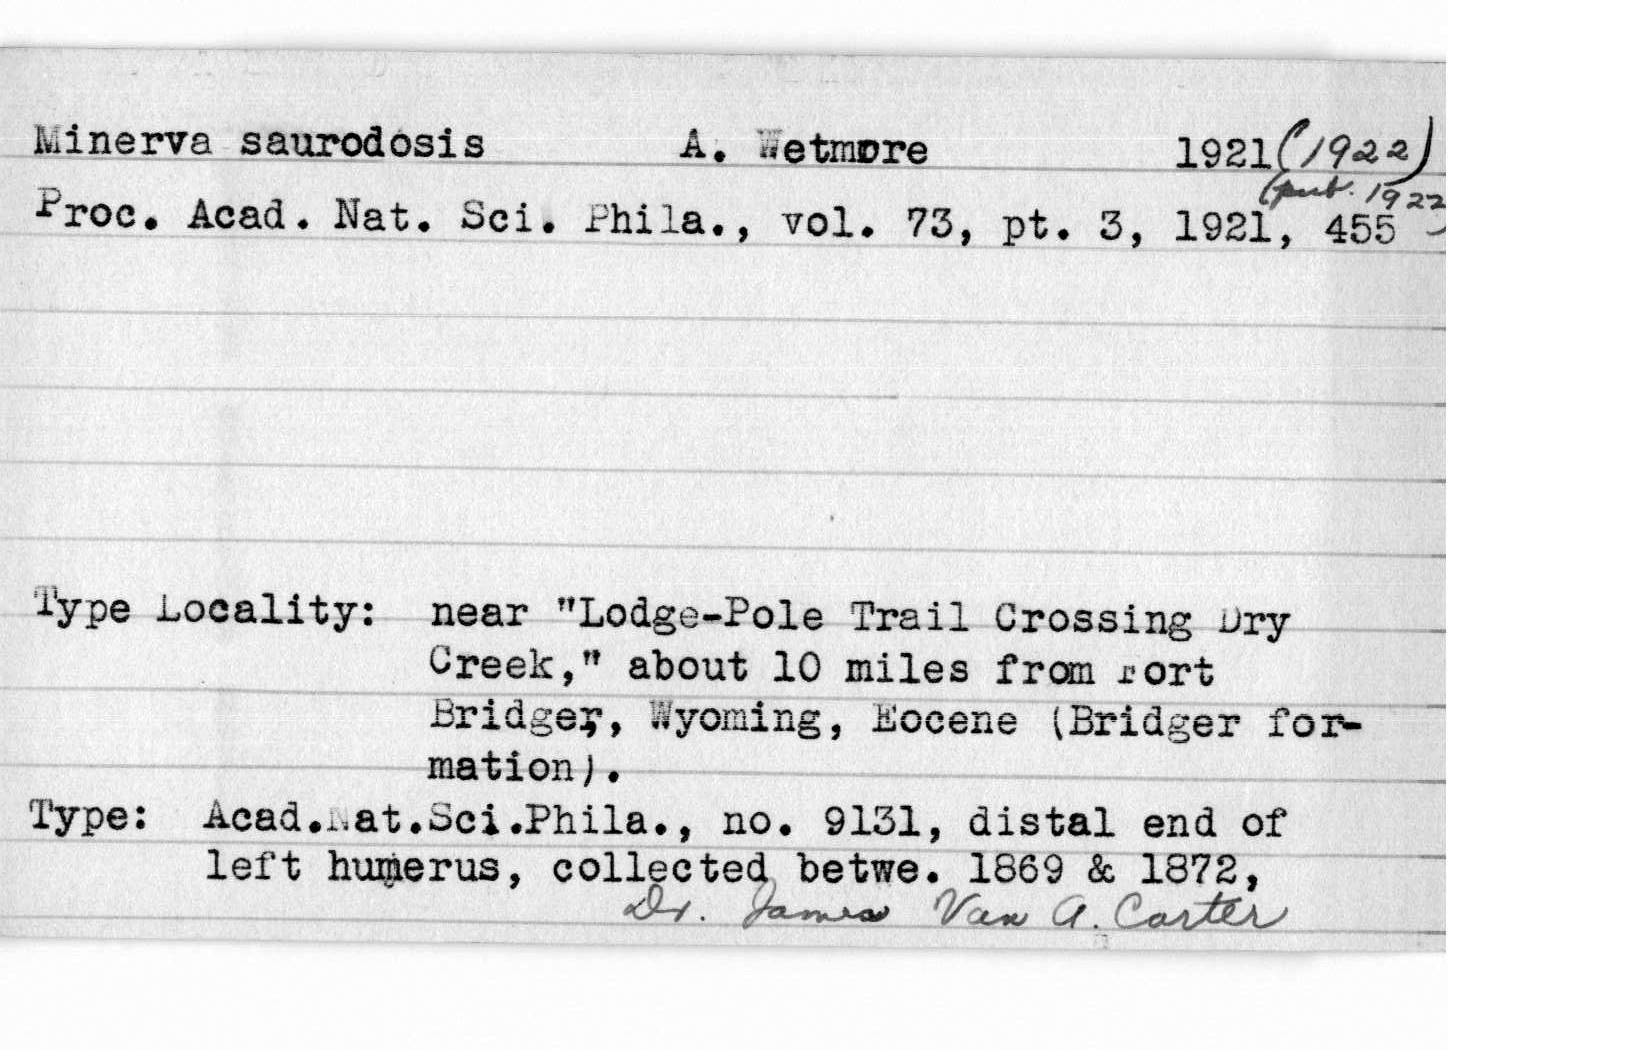 Minerva saurodosis A. Wetmore 1921 (1922)
(pub. 1922)
Proc. Acad. Nat. Sci. Phila., vol. 73, pt. 3, 1921, 455
Type Locality: near "Lodge-Pole Trail Crossing Dry
Creek," about 10 miles from Fort
Bridger, Wyoming, Eocene (Bridger for-
mation).
Type: Acad.Nat.Sci.Phila., no. 9131, distal end of
left humerus, collected betwe. 1869 & 1872,
Dr. James Van A. Carter